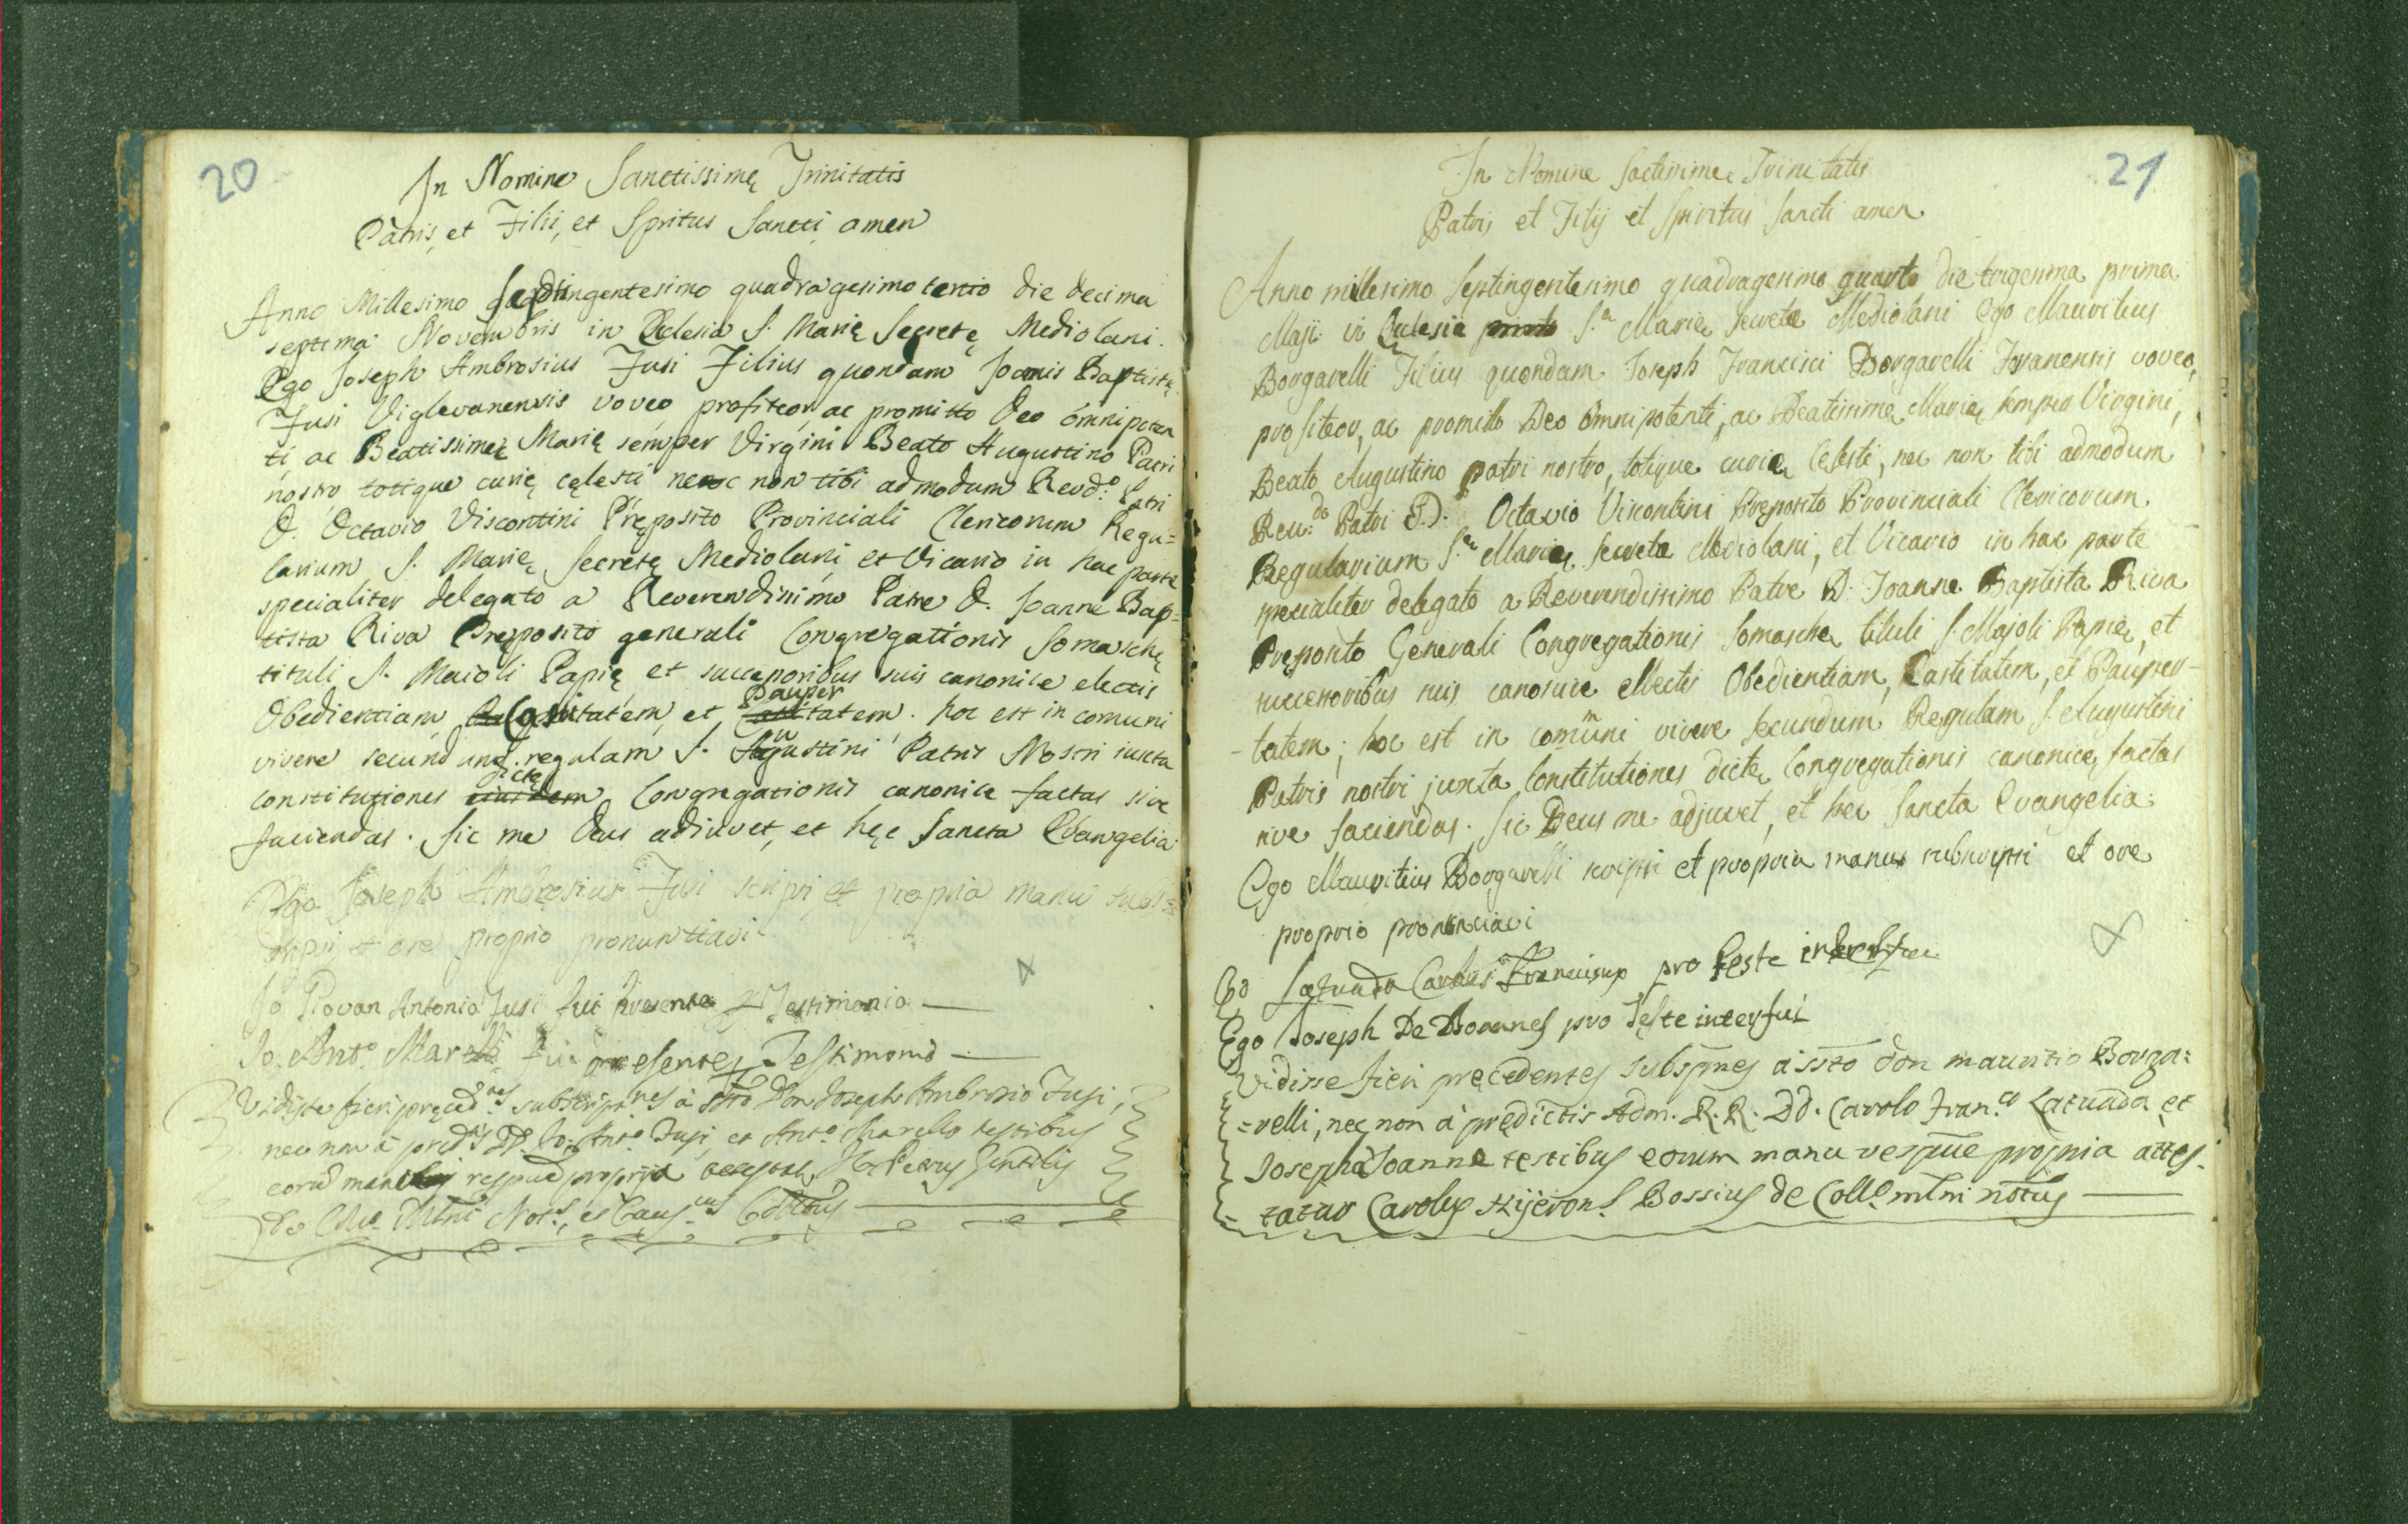 20
In Nomine Sanctissimę Trinitatis
Patris, et Filii, et Spritus Sancti amen
Anno Millesimo Septingentesimo quadragesimo tertio die decima
septima Novembris in Ecclesia S. Marię Secretę Mediolani.
Ego Joseph Ambrosius Fusi Filius quondam Joanis Baptistę
Fusi Viglevanensis voveo, profiteor, ac promitto Deo omnipoten
ti ac Beatissimę Marię semper Virgini Beato Augustino Patri
nostro totique curię cęlesti nec non tibi admodum Revd.o Patri
D. Octavio Viscontini Pręposito Provinciali Clericorum Regu=
larium S. Marię Secretę Mediolani, et Vicario in hac parte
specialiter delegato a Reverendissimo Patre D. Joanne Bap=
tista Riva Pręposito generali Congregationis Somaschę
tituli S. Maioli Papię et successoribus suis canonice electis
Obedientiam, Castitatem, et Paupertatem. hoc est in comuni
vivere secundum regulam S. Augustini Patris Nostri iuxta
constitutiones eiusdem dictę Congregationis canonice factas sive
faciendas. Sic me Deus adiuvet, et hęc Sancta Evangelia
Ego Joseph Ambrosius Fusi scripsi et propria manu subs=
cripsi et ore proprio pronuntiavi
Io Giovan Antonio Fusi fui presente p Testimonio
Io. Ant.o Marelli fui presente p Testimonio
Vidisse fieri pręced.nes subscrip.nes à ssto Don Joseph Ambrosio Fusi,
nec non à pred.is DD. Io: Ant.o Fusi, et Ant.o Marello testibus
eorum manibus respue propria
Not.s, et Caus.us
21
In Nomine Sactissimę Trinitatis
Patris et Filij et Spiritus Sancti amen
Anno millesimo Septingentesimo quadragesimo quarto die trigesima prima
Maji in Ecclesia S.ę Marię Secretę Mediolani Ego Mauritius
Borgarelli Filius quondam Joseph Francisci Borgarelli voveo,
profiteor, ac promitto Deo Omnipotenti, ac Beatissimę Marię semper Virgini,
Beato Augustino patri nostro, totique curię Celesti, nec non tibi admodum
Reu.do Patri D.D. Octavio Viscontini Pręposito Provinciali Clericorum
Regularium S.ę Marię Secretę Mediolani, et Vicario in hac parte
specialiter delegato a Reverendissimo Patre D. Joanne Baptista Riva
Pręposito Generali Congregationis Somaschę tituli S. Majoli Papię, et
successoribus suis canonice ellectis Obedientiam, Castitatem, et Pauper-
-tatem; hoc est in comuni vivere secundum Regulam S. Augustini
Patris nostri juxta Constitutiones dictę Congregationis canonicę factas
sive faciendas. Sic Deus me adjuvet, et hec Sancta Evangelia.
Ego Mauritius Borgarelli scripsi et propria manu subscripsi et ore
proprio pronunciavi
Eo Latuada Carolus Franciscus pro teste interfui
Ego Joseph De Joannes pro Teste interfui
Vidisse fieri pręcedentes subspnes à ssto don mauritio Borga=
=relli, nec non à prędictis Adm. R.R. DD. Carolo Fran.co Latuada et
Josepha Joanne testibus eorum manu respue propria attes-
=tatur Carolus Hijeron.s Bossius de Coll.o mlni notus